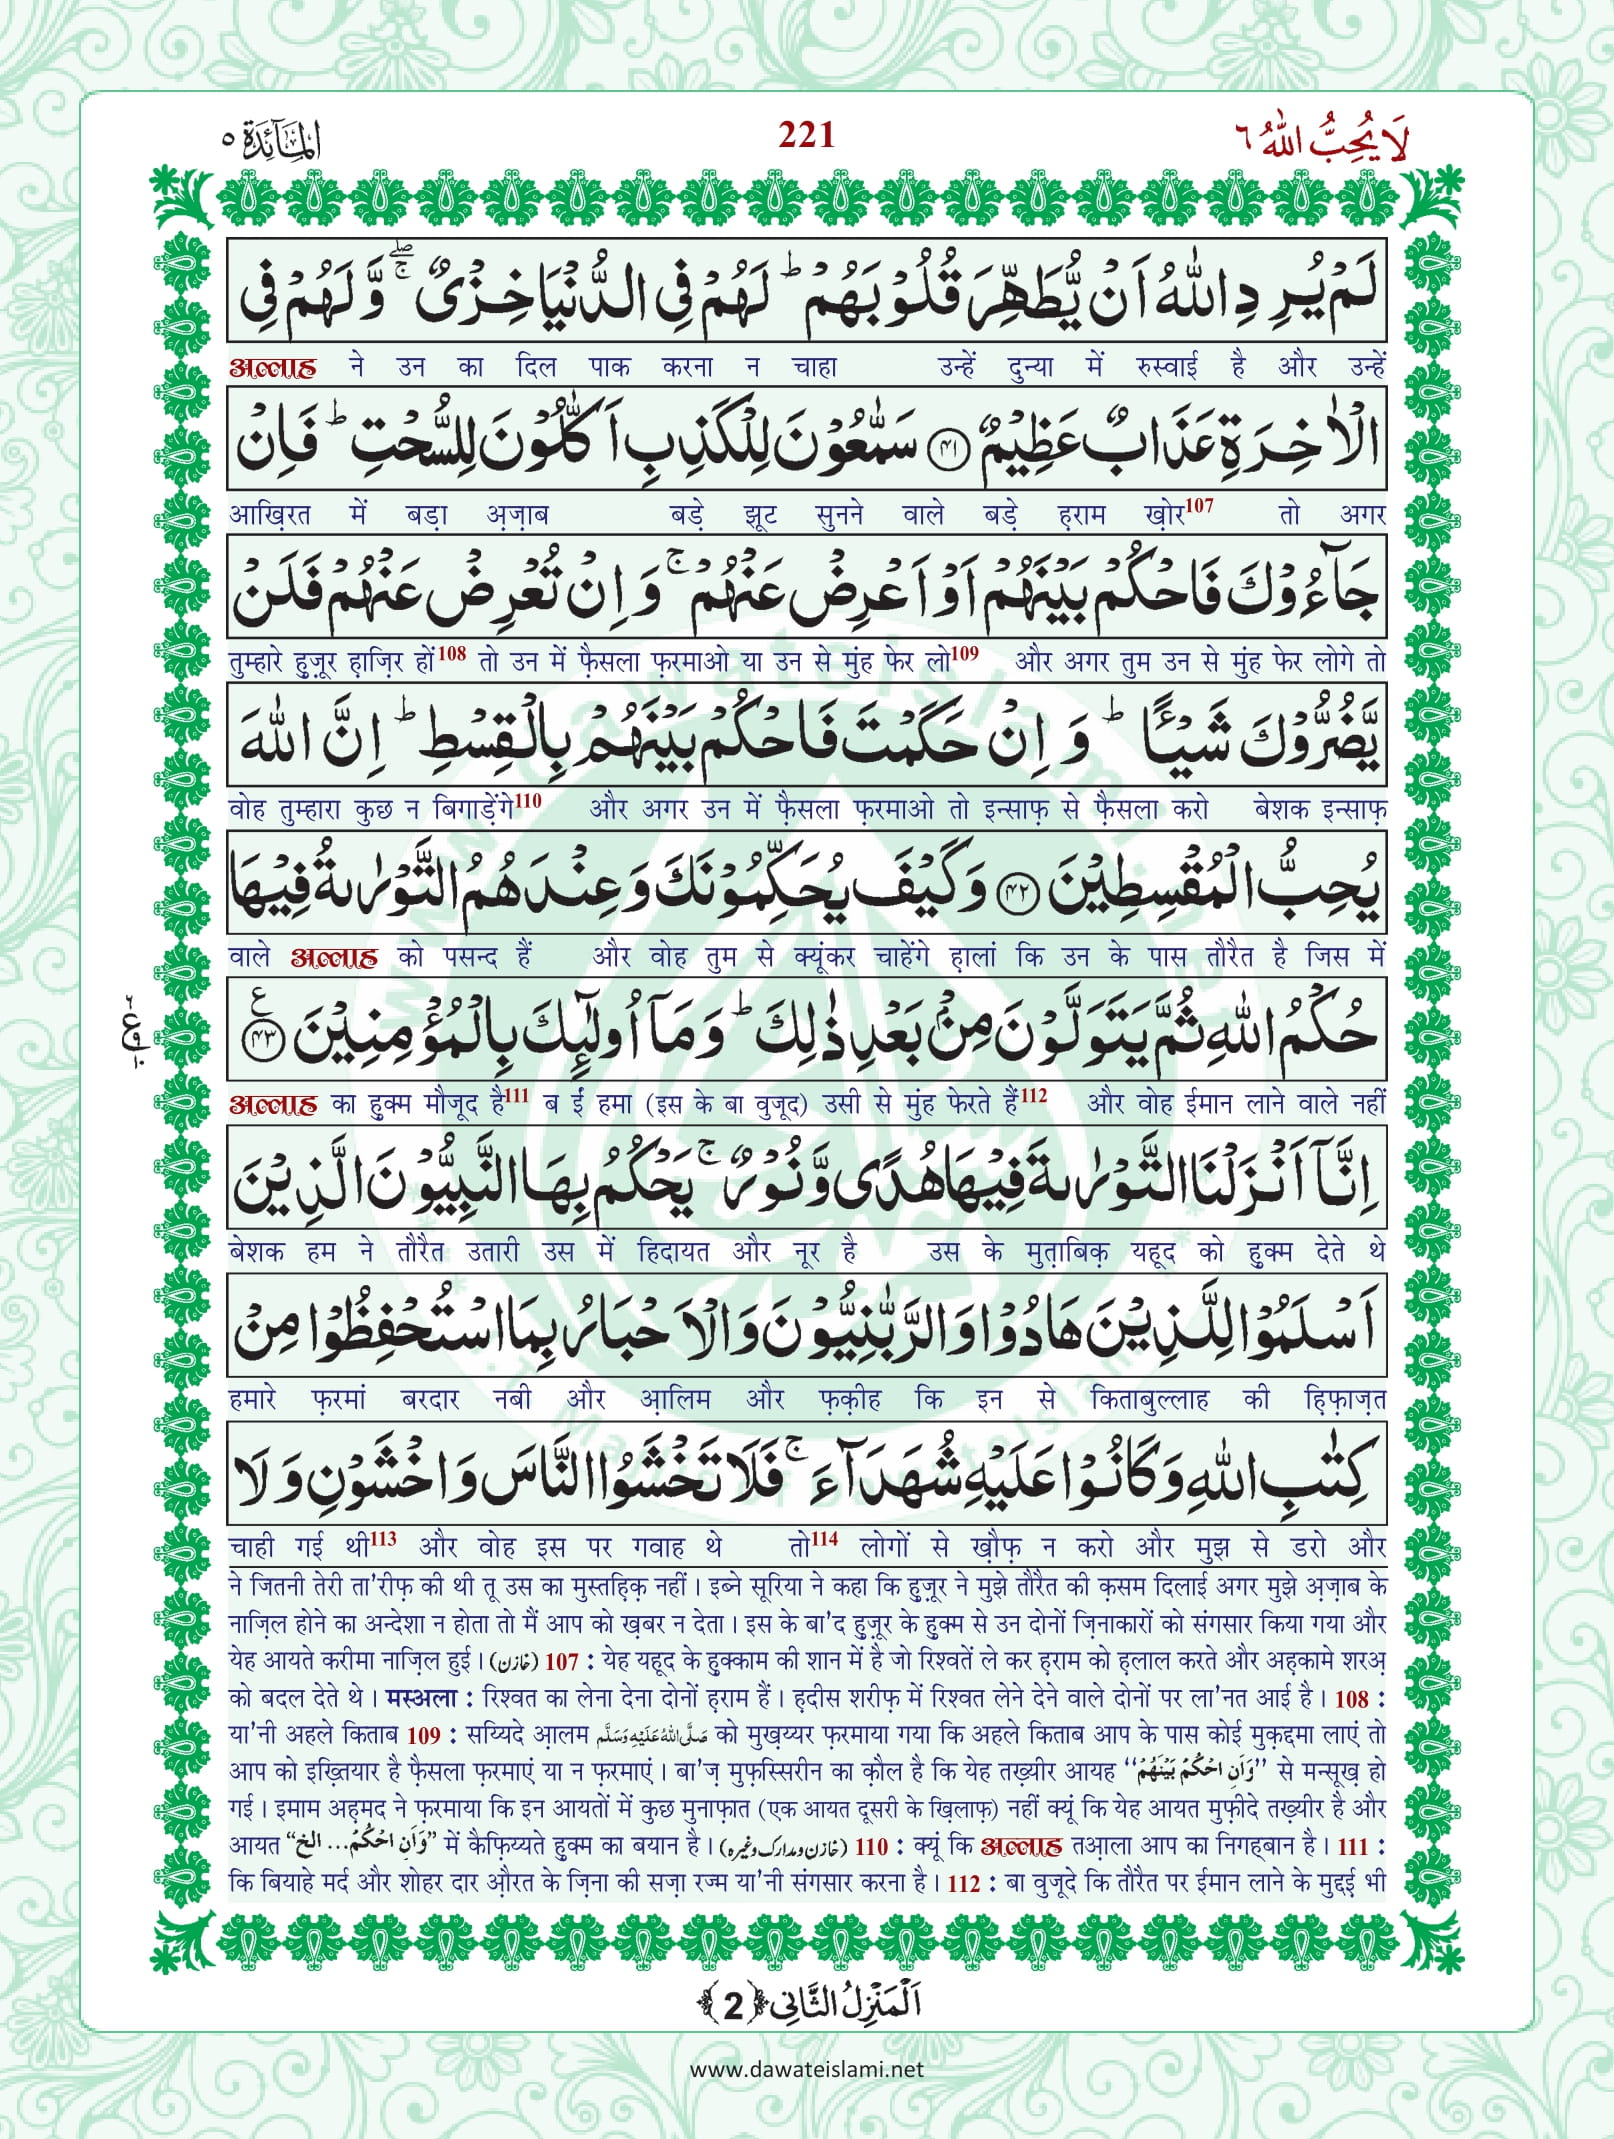 لَا یُحِبُّ اللّٰهُ ٦
221
اَلْمَآئِدَة ٥
لَمْ یُرِدِ اللّٰهُ اَنْ یُّطَهِّرَ قُلُوْبَهُمْ ؕ لَهُمْ فِی الدُّنْیَا خِزْیٌ ۚۖ وَّ لَهُمْ فِی
अल्लाह ने उन का दिल पाक करना न चाहा उन्हें दुन्या में रुस्वाई है और उन्हें
الْاٰخِرَةِ عَذَابٌ عَظِیْمٌ ﴿۴۱﴾ سَمّٰعُوْنَ لِلْكَذِبِ اَكّٰلُوْنَ لِلسُّحْتِ ؕ فَاِنْ
आख़िरत में बड़ा अ़ज़ाब बड़े झूट सुनने वाले बड़े ह़राम ख़ोर107 तो अगर
جَآءُوْكَ فَاحْكُمْ بَیْنَهُمْ اَوْ اَعْرِضْ عَنْهُمْ ۚ وَ اِنْ تُعْرِضْ عَنْهُمْ فَلَنْ
तुम्हारे हु़ज़ूर ह़ाज़िर हों108 तो उन में फ़ैसला फ़रमाओ या उन से मुंह फेर लो109 और अगर तुम उन से मुंह फेर लोगे तो
یَّضُرُّوْكَ شَیْـًٔا ؕ وَ اِنْ حَكَمْتَ فَاحْكُمْ بَیْنَهُمْ بِالْقِسْطِ ؕ اِنَّ اللّٰهَ
वोह तुम्हारा कुछ न बिगाड़ेंगे110 और अगर उन में फ़ैसला फ़रमाओ तो इन्साफ़ से फ़ैसला करो बेशक इन्साफ़
یُحِبُّ الْمُقْسِطِیْنَ ﴿۴۲﴾ وَ كَیْفَ یُحَكِّمُوْنَكَ وَ عِنْدَهُمُ التَّوْرٰىةُ فِیْهَا
वाले अल्लाह को पसन्द हैं और वोह तुम से क्यूंकर चाहेंगे ह़ालां कि उन के पास तौरैत है जिस में
حُكْمُ اللّٰهِ ثُمَّ یَتَوَلَّوْنَ مِنْۢ بَعْدِ ذٰلِكَ ؕ وَ مَاۤ اُولٰٓىِٕكَ بِالْمُؤْمِنِیْنَ ﴿۴۳﴾ ع
अल्लाह का हु़क्म मौजूद है111 ब ईं हमा (इस के बा वुजूद) उसी से मुंह फेरते हैं112 और वोह ईमान लाने वाले नहीं
اِنَّاۤ اَنْزَلْنَا التَّوْرٰىةَ فِیْهَا هُدًى وَّ نُوْرٌ ۚ یَحْكُمُ بِهَا النَّبِیُّوْنَ الَّذِیْنَ
बेशक हम ने तौरैत उतारी उस में हिदायत और नूर है उस के मुत़ाबिक़ यहूद को हु़क्म देते थे
اَسْلَمُوْا لِلَّذِیْنَ هَادُوْا وَ الرَّبّٰنِیُّوْنَ وَ الْاَحْبَارُ بِمَا اسْتُحْفِظُوْا مِنْ
हमारे फ़रमां बरदार नबी और आ़लिम और फ़क़ीह कि इन से किताबुल्लाह की ह़िफ़ाज़त
كِتٰبِ اللّٰهِ وَ كَانُوْا عَلَیْهِ شُهَدَآءَ ۚ فَلَا تَخْشَوُا النَّاسَ وَ اخْشَوْنِ وَ لَا
चाही गई थी113 और वोह इस पर गवाह थे तो114 लोगों से ख़ौफ़ न करो और मुझ से डरो और
ने जितनी तेरी ता'रीफ़ की थी तू उस का मुस्तह़िक़ नहीं। इब्ने सूरिया ने कहा कि हु़ज़ूर ने मुझे तौरैत की क़सम दिलाई अगर मुझे अ़ज़ाब के
नाज़िल होने का अन्देशा न होता तो मैं आप को ख़बर न देता। इस के बा'द हु़ज़ूर के हु़क्म से उन दोनों ज़िनाकारों को संगसार किया गया और
येह आयते करीमा नाज़िल हुई। (خازن) 107 : येह यहूद के हु़क्काम की शान में है जो रिश्वतें ले कर ह़राम को ह़लाल करते और अह़कामे शरअ़
को बदल देते थे। मस्अला : रिश्वत का लेना देना दोनों ह़राम हैं। ह़दीस शरीफ़ में रिश्वत लेने देने वाले दोनों पर ला'नत आई है। 108 :
या'नी अहले किताब 109 : सय्यिदे आ़लम صَلَّى اللّٰهُ عَلَیْهِ وَسَلَّم को मुख़य्यर फ़रमाया गया कि अहले किताब आप के पास कोई मुक़द्दमा लाएं तो
आप को इख़्तियार है फ़ैसला फ़रमाएं या न फ़रमाएं। बा'ज़ मुफ़स्सिरीन का क़ौल है कि येह तख़्यीर आयह ‘‘وَاَنِ احْكُمْ بَیْنَهُمْ’’ से मन्सूख़ हो
गई। इमाम अह़मद ने फ़रमाया कि इन आयतों में कुछ मुनाफ़ात (एक आयत दूसरी के ख़िलाफ़) नहीं क्यूं कि येह आयत मुफ़ीदे तख़्यीर है और
आयत “وَاَنِ احْكُمْ... الخ” में कैफ़िय्यते हु़क्म का बयान है। (خازن و مدارک وغیرہ) 110 : क्यूं कि अल्लाह तआ़ला आप का निगह्बान है। 111 :
कि बियाहे मर्द और शोहर दार औ़रत के ज़िना की सज़ा रज्म या'नी संगसार करना है। 112 : बा वुजूदे कि तौरैत पर ईमान लाने के मुद्दई भी
اَلْمَنْزِلُ الثَّانِی ﴿2﴾
www.dawateislami.net